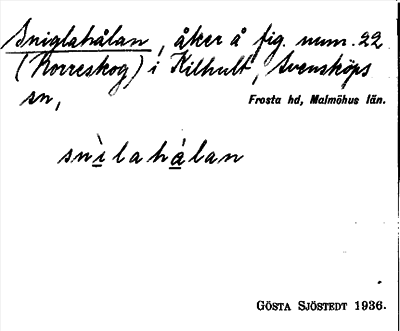 Sniglahålan, åker å fig. num. 22
(Korreskog) i Kilhult, Svensköps
sn,
Frosta hd, Malmöhus län.
snìlahálan
GÖSTA SJÖSTEDT 1936.